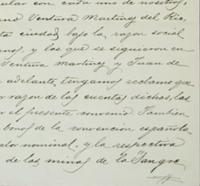 ular con cada uno de nosotros,
ne Ventura Martinez del Rio,
ta ciudad bajo la razon social
nos, y los que se siguieron en
Ventura Martinez y Juan de
adelante, tengamos reclamo que
r razon de las cuentas dichas, las
r el presente convenio. Tambien
bonos de la convencion española
alor nominal, y la respectiva
de las minas de la Sangre